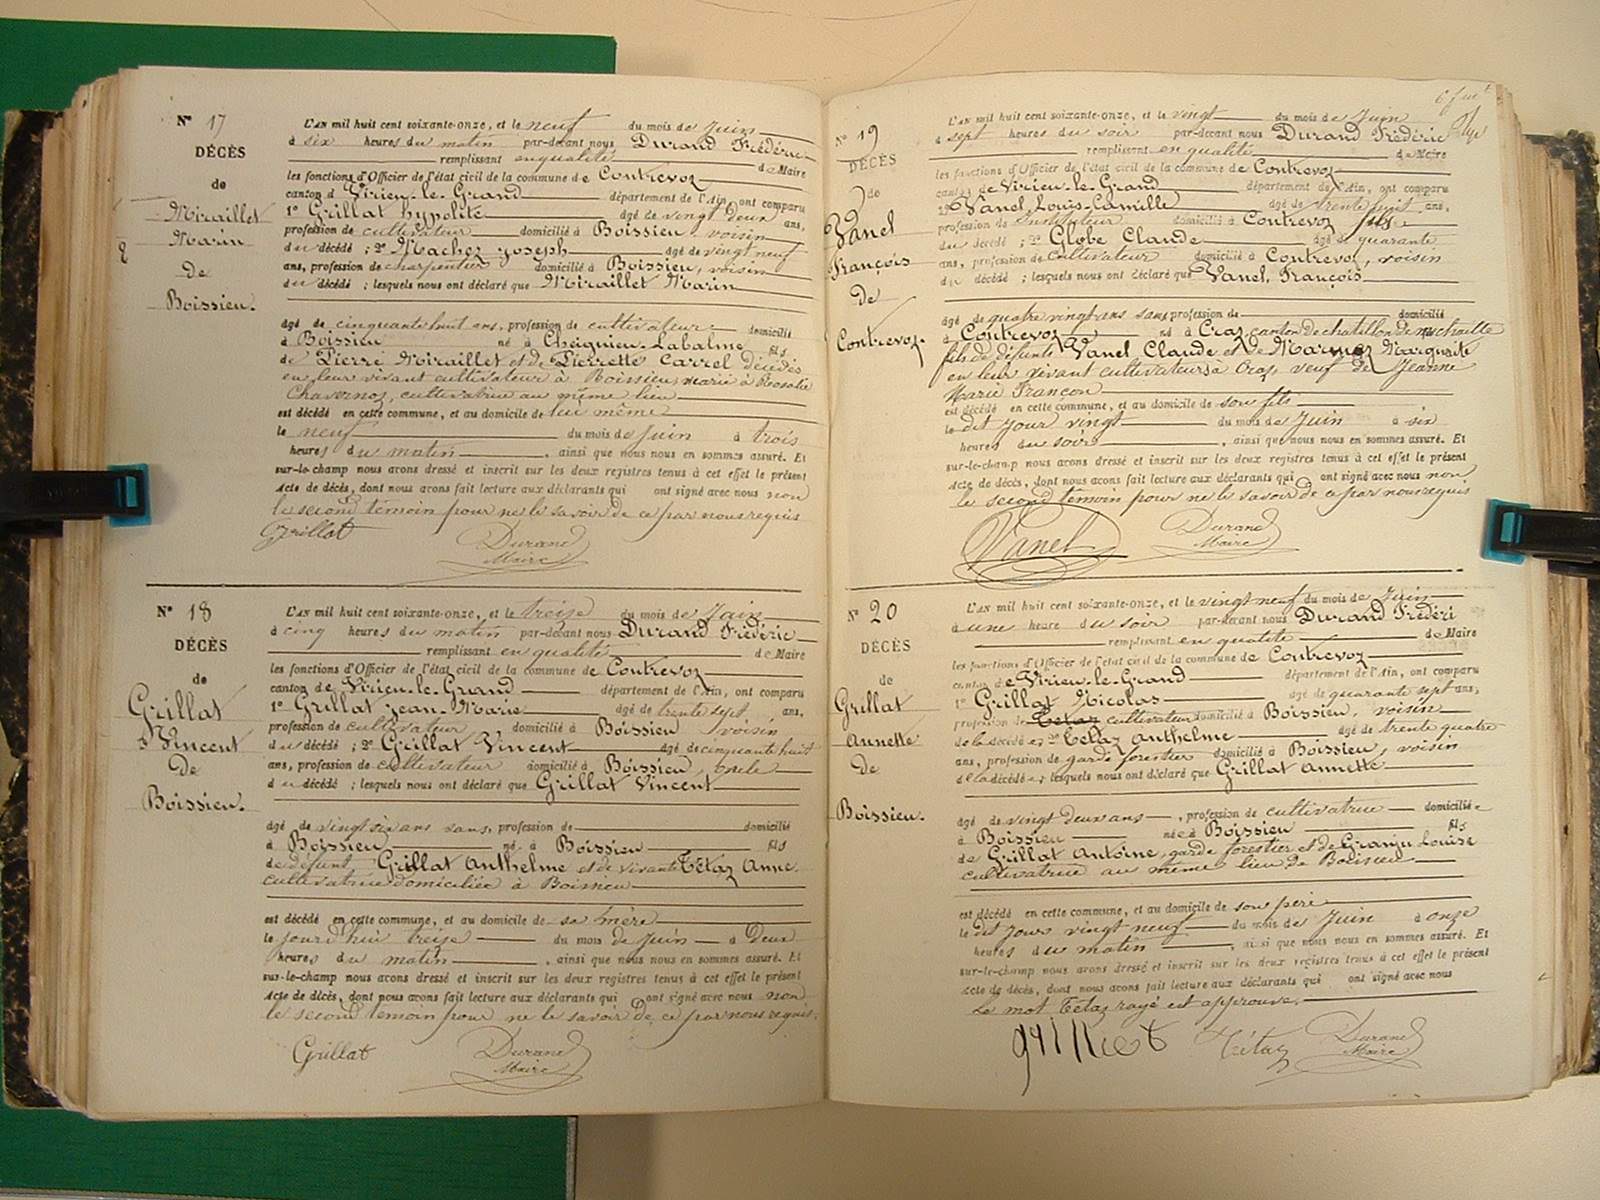 N° 17
DÉCÈS
de
Miraillet
Marin
De
Boissieu.
L'AN mil huit cent soixante-onze, et le neuf du mois de Juin
à six heures du matin par-devant nous Durand Frédéric
remplissant en qualité de Maire
les fonctions d'Officier de l'état civil de la commune de Contrevoz
canton de Virieu-le-Grand département de l'Ain, ont comparu
1° Grillat hypolite âgé de vingt deux ans,
profession de cultivateur domicilié à Boissieu, voisin
du décédé ; 2° Machez joseph âgé de vingt neuf
ans, profession de charpentier domicilié à Boissieu, voisin
du décédé ; lesquels nous ont déclaré que Miraillet Marin
âgé de cinquante huit ans, profession de cultivateur domicilié
à Boissieu né à Cheignieu-Labalme fils
de Pierre Miraillet et de Pierrette Carrel décédés
en leur vivant cultivateur à Boissieu, marié à Rosalie
Chavernoz, cultivatrice au même lieu
est décédé en cette commune, et au domicile de lui même
le neuf du mois de Juin à trois
heures du matin, ainsi que nous nous en sommes assuré. Et
sur-le-champ nous avons dressé et inscrit sur les deux registres tenus à cet effet le présent
acte de décès, dont nous avons fait lecture aux déclarants qui ont signé avec nous non
le second témoin pour ne le savoir de ce par nous requis
Grillat Durand
Maire
N° 18
DÉCÈS
de
Grillat
Vincent
De
Boissieu.
L'AN mil huit cent soixante-onze, et le treize du mois de Juin
à cinq heures du matin par-devant nous Durand Frédéric
remplissant en qualité de Maire
les fonctions d'Officier de l'état civil de la commune de Contrevoz
canton de Virieu-le-Grand département de l'Ain, ont comparu
1° Grillat Jean-Marie âgé de trente sept ans,
profession de cultivateur domicilié à Boissieu voisin
du décédé ; 2° Grillat Vincent âgé de cinquante huit
ans, profession de cultivateur domicilié à Boissieu, oncle
du décédé ; lesquels nous ont déclaré que Grillat Vincent
âgé de vingt six ans sans, profession de domicilié
à Boissieu né à Boissieu fils
de défunt Grillat Anthelme et de vivante Tétaz Anne
cultivatrice domiciliée à Boissieu
est décédé en cette commune, et au domicile de sa mère
le jourd'hui treize du mois de Juin à Deux
heures du matin, ainsi que nous nous en sommes assuré. Et
sur-le-champ nous avons dressé et inscrit sur les deux registres tenus à cet effet le présent
acte de décès, dont nous avons fait lecture aux déclarants qui ont signé avec nous non
le second témoin pour ne le savoir de ce par nous requis.
Grillat Durand
Maire
N° 19
DÉCÈS
de
Vanel
François
de
Contrevoz.
L'AN mil huit cent soixante-onze, et le vingt du mois de Juin
à sept heures du soir par-devant nous Durand Frédéric
remplissant en qualité de Maire
les fonctions d'Officier de l'état civil de la commune de Contrevoz
canton de Virieu-le-Grand département de l'Ain, ont comparu
1° Vanel Louis-Camille âgé de trente huit ans,
profession de Instituteur domicilié à Contrevoz fils
du décédé ; 2° Globe Claude âgé de quarante
ans, profession de Cultivateur domicilié à Contrevoz, voisin
du décédé ; lesquels nous ont déclaré que Vanel, François
âgé de quatre vingt ans sans profession de domicilié
à Contrevoz né à Craz, canton de chatillon de michaille
fils de défunts Vanel Claude et de Marguerite
en leur vivant cultivateurs à Craz, veuf de Jeanne
Marie Françon
est décédé en cette commune, et au domicile de son fils
le dit jour vingt du mois de Juin à six
heures du soir, ainsi que nous nous en sommes assuré. Et
sur-le-champ nous avons dressé et inscrit sur les deux registres tenus à cet effet le présent
acte de décès, dont nous avons fait lecture aux déclarants qui ont signé avec nous non
le second témoin pour ne le savoir de ce par nous requis
Vanel Durand
Maire
N° 20
DÉCÈS
de
Grillat
Annette
De
Boissieu.
L'AN mil huit cent soixante-onze, et le vingt neuf du mois de Juin
à une heure du soir par-devant nous Durand Frédéri
remplissant en qualité de Maire
les fonctions d'Officier de l'état civil de la commune de Contrevoz
canton de Virieu-le-Grand département de l'Ain, ont comparu
1° Grillat Nicolas âgé de quarante sept ans,
profession de Tetaz cultivateur domicilié à Boissieu, voisin
de la décédée 2° Tetaz Anthelme âgé de trente quatre
ans, profession de garde forestier domicilié à Boissieu, voisin
de la décédée ; lesquels nous ont déclaré que Grillat Annette
âgé de vingt deux ans, profession de cultivatrice domiciliée
à Boissieu née à Boissieu fils
de Grillat Antoine, garde forestier et de Granju Louise
cultivatrice au même lieu de Boissieu
est décédé en cette commune, et au domicile de son père
le dit jour vingt neuf du mois de Juin à onze
heures du matin, ainsi que nous nous en sommes assuré. Et
sur-le-champ nous avons dressé et inscrit sur les deux registres tenus à cet effet le présent
acte de décès, dont nous avons fait lecture aux déclarants qui ont signé avec nous
Le mot Tetaz rayé est approuvé.
Tétaz Durand
Maire